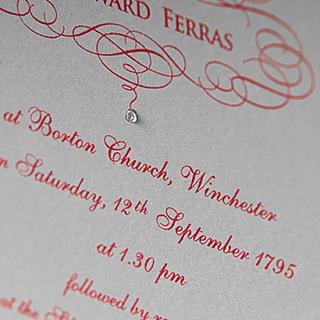 WARD FERRAS
at Borton Church, Winchester
n Saturday, 12th September 1795
at 1.30 pm
followed by
at the